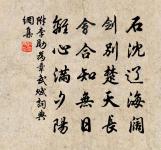 石沈辽海阔
剑别楚天长
会合知无日
离心满夕阳
附李勋为章武赋词典
网集